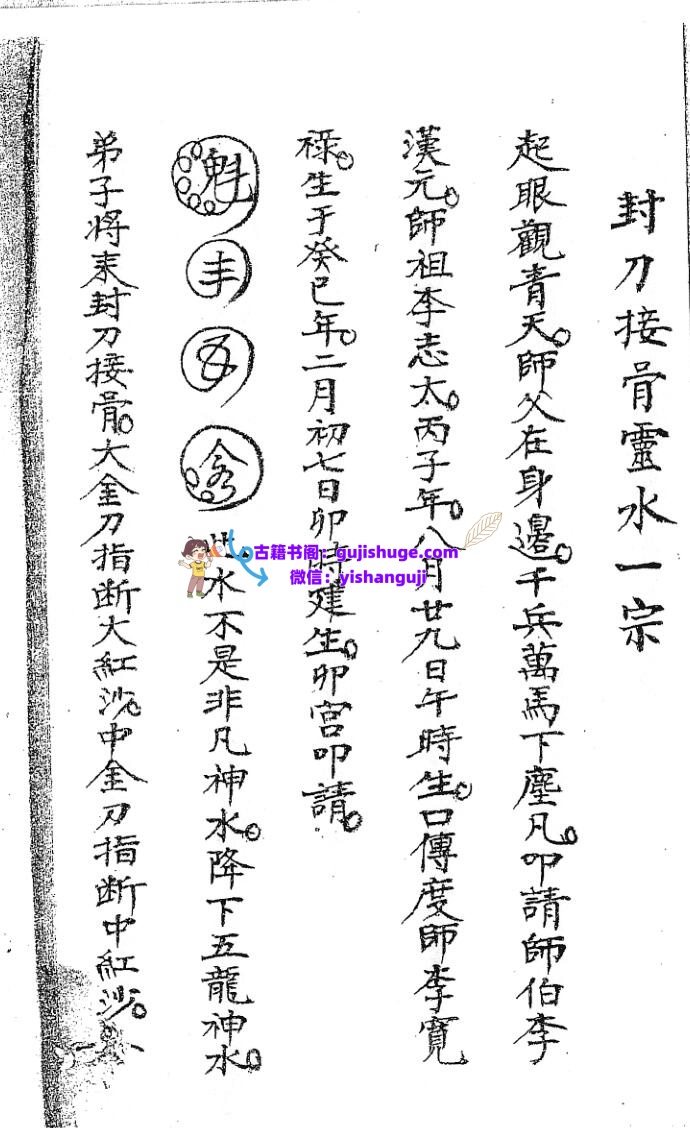 封刀接骨靈水一宗
起眼觀青天。師父在身邊。千兵萬馬下塵凡。叩請師伯李
漢元。師祖李志太。丙子年。八月廿九日午時生。口傳度師李寬
祿。生于癸巳年。二月初七日卯時建生。卯宮叩請。
魁 丰 水不是非凡神水。降下五龍神水。
弟子將來封刀接骨。大金刀指断大紅沙。中金刀指断中紅沙。
古籍书阁：gujishuge.com
微信：yishanguji